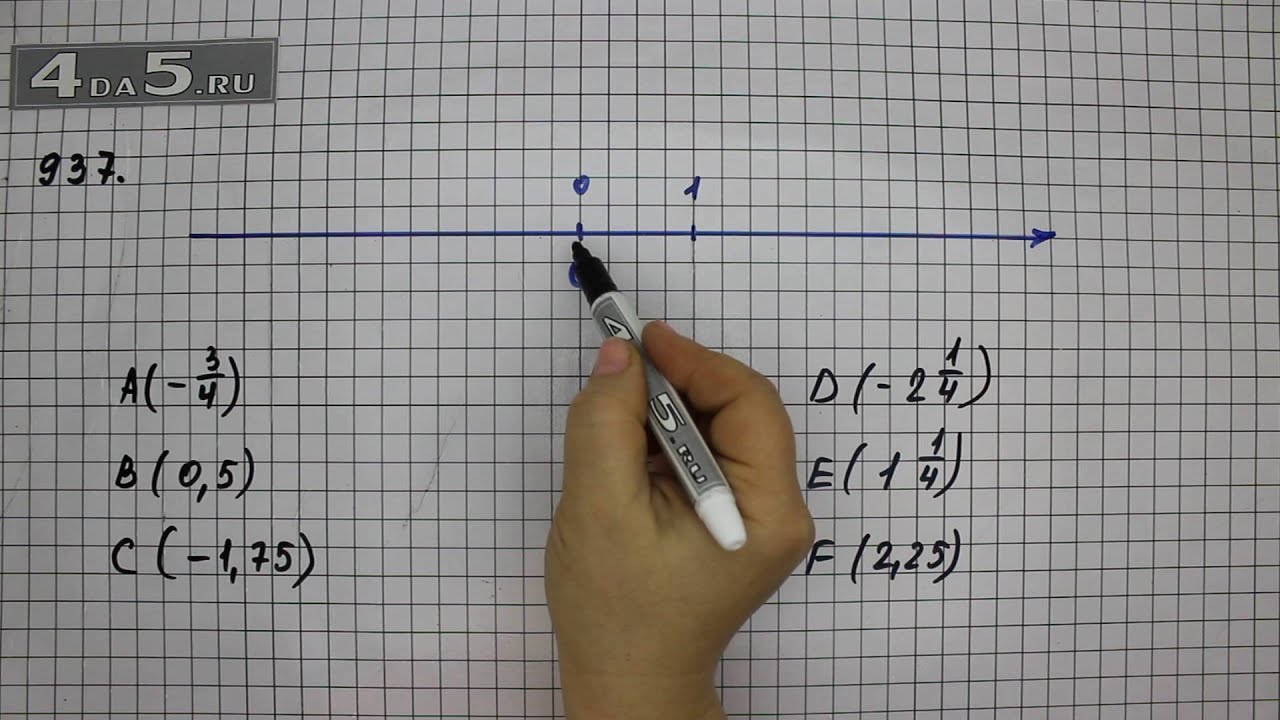 4DA5.RU
937.
0 1
0
A(-3/4)
B(0,5)
C(-1,75)
D(-2 1/4)
E(1 1/4)
F(2,25)
5.RU